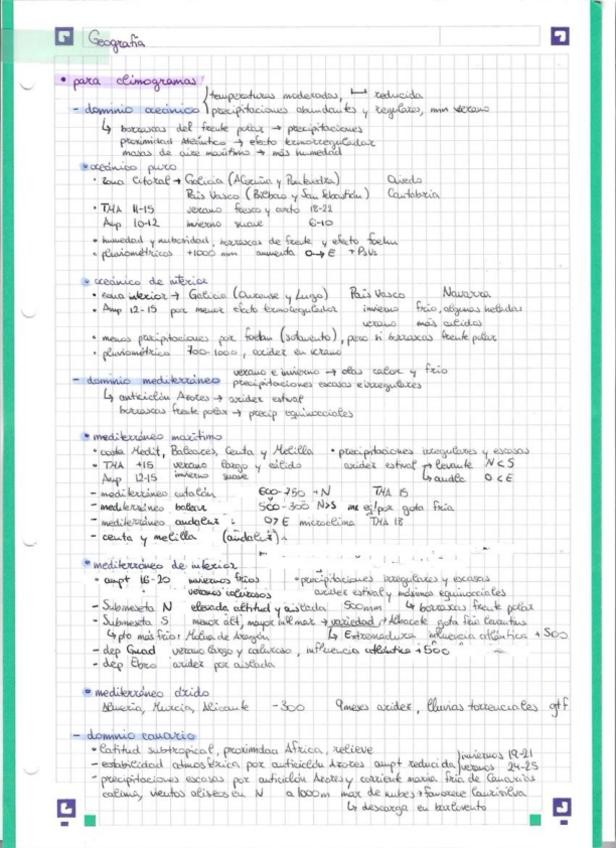 Geografía
• para climogramas
temperaturas moderadas, ↦ reducida
- dominio oceánico precipitaciones abundantes y regulares, mm verano
↳ borrascas del frente polar → precipitaciones
proximidad Atlántico → efecto termorregulador
masas de aire marítimo → más humedad
• oceánico puro
• zona litoral → Galicia (A Coruña y Pontevedra) Oviedo
País Vasco (Bilbao y San Sebastián) Cantabria
• TMA 11-15 verano fresco y corto 18-22
Amp 10-12 invierno suave 6-10
• humedad y nubosidad, borrascas de frente y efecto foehn
• pluviométricos +1000 mm aumenta O→E
• oceánico de interior
• zona interior → Galicia (Ourense y Lugo) País Vasco Navarra
• Amp 12-15 por menor efecto termorregulador invierno frío, algunas heladas
verano más cálidos
• menos precipitaciones por foehn (sotavento), pero sí borrascas frente polar
• pluviométrico 700-1000, aridez en verano
verano e invierno → olas calor y frío
- dominio mediterráneo precipitaciones escasas e irregulares
↳ anticiclón Azores → aridez estival
borrascas frente polar → precip equinocciales
• mediterráneo marítimo
• costa Medit, Baleares, Ceuta y Melilla • precipitaciones irregulares y escasas
• TMA +15 verano largo y cálido aridez estival → levante N<S
Amp 12-15 invierno suave ↳ andlc O<E
- mediterráneo catalán 600-750 +N TMA 15
- mediterráneo balear 500-300 N>S por gota fría
- mediterráneo andaluz: O>E microclima TMA 18
- ceuta y melilla (andaluz)
• mediterráneo de interior
• ampt 16-20 inviernos fríos • precipitaciones irregulares y escasas
veranos calurosos aridez estival y máximos equinocciales
- Submeseta N elevada altitud y aislada 500mm ↳ borrascas frente polar
- Submeseta S menor alt, mayor infl mar → variedad Albacete gota fría levantina
↳ pto más frío: Molina de Aragón ↳ Extremadura influencia atlántica +500
- dep Guad verano largo y caluroso, influencia atlántica +500
- dep Ebro aridez por aislada
• mediterráneo árido
Almería, Murcia, Alicante -300 9 meses aridez, lluvias torrenciales gtf
- dominio canario
• latitud subtropical, proximidad África, relieve
- estabilidad atmosférica por anticiclón Azores ampt reducida inviernos 19-21
veranos 24-25
- precipitaciones escasas por anticiclón Azores y corriente marina fría de Canarias
calima, vientos alisios en N a 1000m mar de nubes + favorece laurisilva
↳ descarga en barlovento